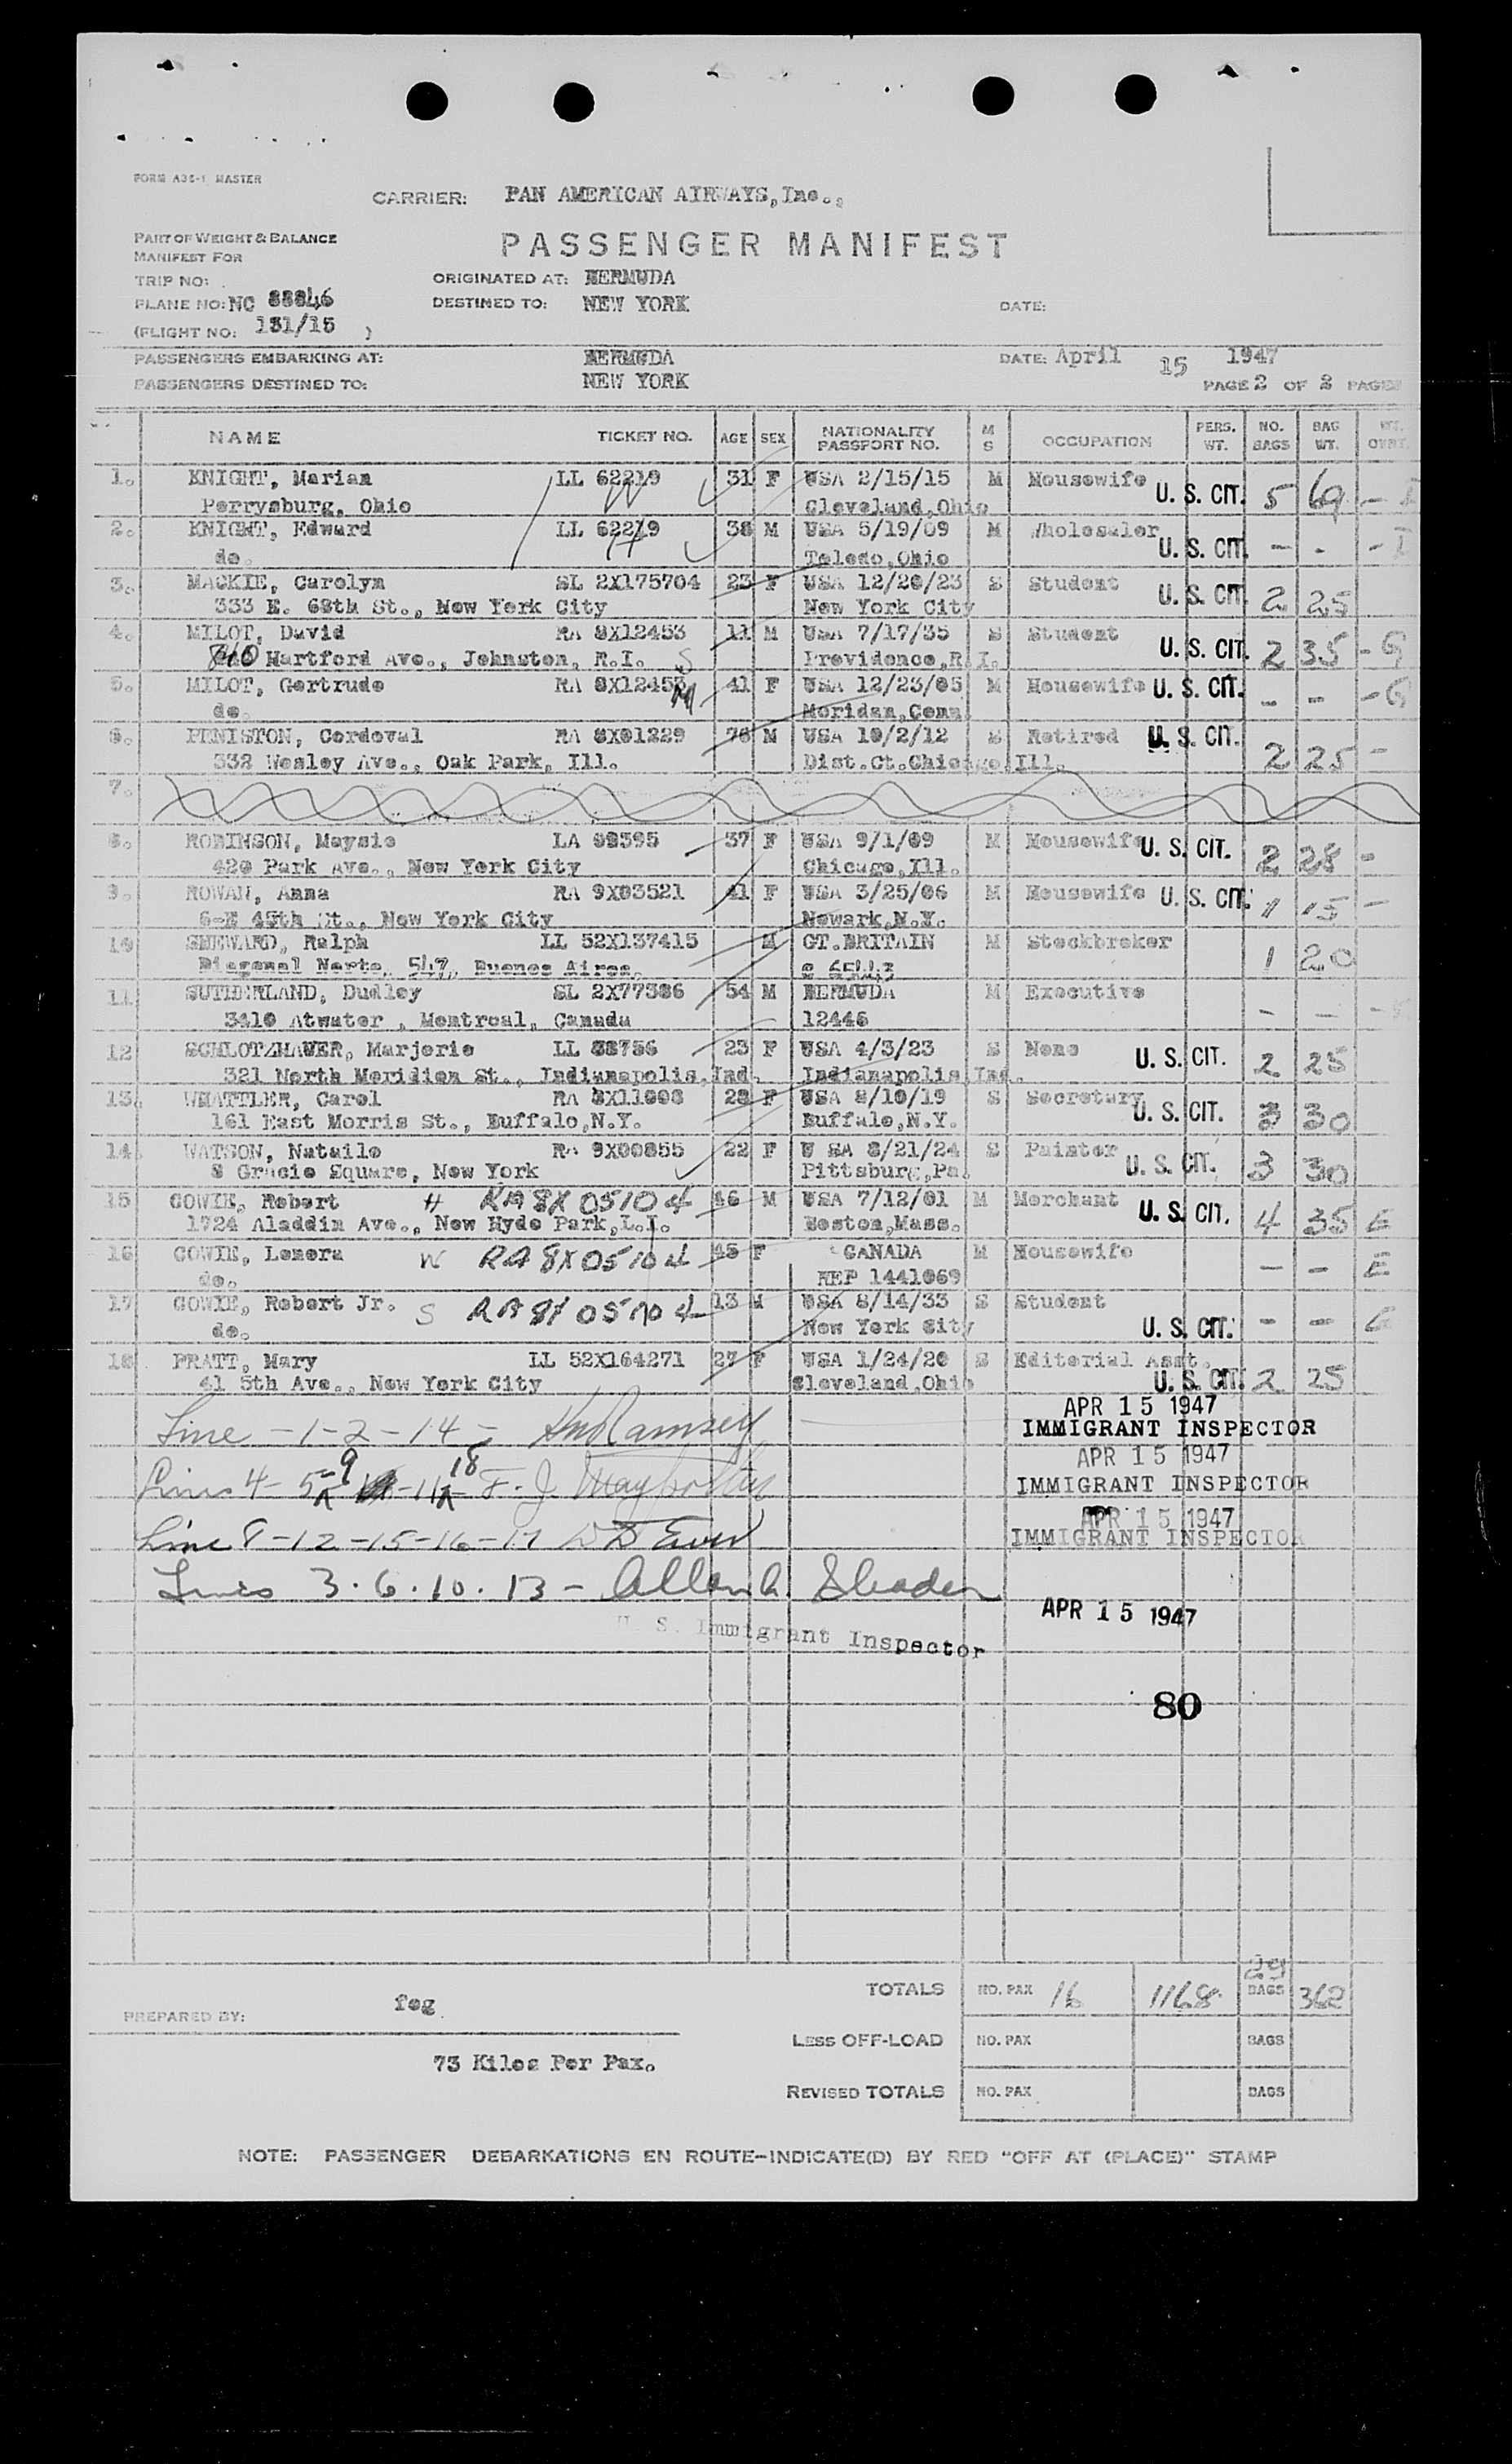 FORM A35-1 MASTER
CARRIER: PAN AMERICAN AIRWAYS, Inc.,
PART OF WEIGHT & BALANCE
MANIFEST FOR
PASSENGER MANIFEST
TRIP NO: ORIGINATED AT: BERMUDA
PLANE NO: NC 88846 DESTINED TO: NEW YORK DATE:
(FLIGHT NO: 131/15 )
PASSENGERS EMBARKING AT: BERMUDA DATE: April 15 1947
PASSENGERS DESTINED TO: NEW YORK PAGE 2 OF 2 PAGES
NAME TICKET NO. AGE SEX NATIONALITY PASSPORT NO. M S OCCUPATION PERS. WT. NO. BAGS BAG WT. WT.
1. KNIGHT, Marian LL 62219 31 F USA 2/15/15 M Housewife U. S. CIT. 5 69 -
Perrysburg, Ohio W Cleveland, Ohio
2. KNIGHT, Edward LL 62219 38 M USA 5/19/09 M Wholesaler U. S. CIT. - - -
do. H Toledo, Ohio
3. MACKIE, Carolyn SL 2X175704 23 F USA 12/20/23 S Student U. S. CIT. 2 25
333 E. 68th St., New York City New York City
4. MILOT, David RA 8X12453 11 M USA 7/17/35 S Student U. S. CIT. 2 35 - G
Hartford Ave., Johnston, R.I. S Providence, R.I.
5. MILOT, Gertrude RA 8X12453 41 F USA 12/23/05 M Housewife U. S. CIT. - - - G
do. M Meridan, Conn.
6. PENISTON, Cordoval RA 8X01229 76 M USA 10/2/12 S Retired U. S. CIT. 2 25 -
332 Wesley Ave., Oak Park, Ill. Dist. Ct. Chicago, Ill.
7.
8. ROBINSON, Maysie LA 98395 37 F USA 9/1/09 M Housewife U. S. CIT. 2 28 -
420 Park Ave., New York City Chicago, Ill.
9. ROWAN, Anna RA 9X03521 41 F USA 3/25/06 M Housewife U. S. CIT. 1 15 -
6-E 45th St., New York City Newark, N.Y.
10 Ralph LL 52X137415 M GT. BRITAIN M Stockbroker 1 20
Diagonal Norte, 547, Buenos Aires,
11 SUTHERLAND, Dudley SL 2X77386 54 M BERMUDA M Executive - - -
3410 Atwater , Montreal, Canada 12446
12 SCHLOTZHAUER, Marjorie LL 88756 23 F USA 4/3/23 S None U. S. CIT. 2 25
321 North Meridion St., Indianapolis, Ind. Indianapolis, Ind.
13. WHATTLER, Carol RA 28 F USA 8/10/19 S Secretary U. S. CIT. 3 30
161 East Morris St., Buffalo, N.Y. Buffalo, N.Y.
14. WATSON, Natailo RA 9X00855 22 F U SA 8/21/24 S Painter U. S. CIT. 3 30
8 Gracie Square, New York Pittsburg, Pa.
15 COWIE, Robert H RA 8X05104 46 M USA 7/12/01 M Merchant U. S. CIT. 4 35 E
1724 Aladdin Ave., New Hyde Park, L.I. Boston, Mass.
16 COWIE, Lenora W RA 8X05104 45 F CANADA M Housewife - - E
do. REP 1441069
17 COWIE, Robert Jr. S RA 8X05104 13 M USA 8/14/33 S Student
do. New York City U. S. CIT. - -
18 PRATT, Mary LL 52X164271 27 F USA 1/24/20 S Editorial Asst.
41 5th Ave., New York City Cleveland, Ohio U. S. CIT. 2 25
Line - 1 - 2 - 14 - Ramsey APR 15 1947
IMMIGRANT INSPECTOR
Lines 4 - 5 - 9 - 11 - 18 F. J. APR 15 1947
IMMIGRANT INSPECTOR
Line 8 - 12 - 15 - 16 - 17 APR 15 1947
IMMIGRANT INSPECTOR
Lines 3 . 6 . 10 . 13 - Allen APR 15 1947
U. S. Immigrant Inspector
80
29
TOTALS NO. PAX 16 1168 BAGS 362
PREPARED BY: feg
LESS OFF-LOAD NO. PAX BAGS
73 Kilos Per Pax.
REVISED TOTALS NO. PAX BAGS
NOTE: PASSENGER DEBARKATIONS EN ROUTE-INDICATE(D) BY RED "OFF AT (PLACE)" STAMP